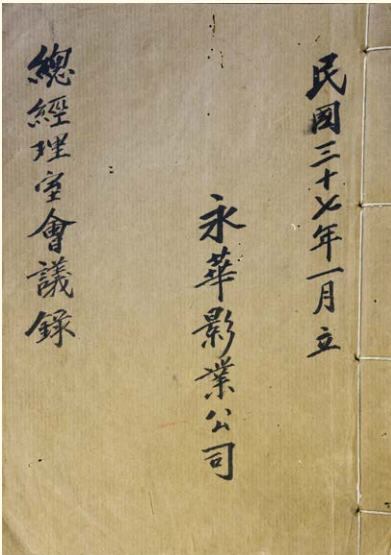 民國三十七年一月立
永華影業公司
總經理室會議錄